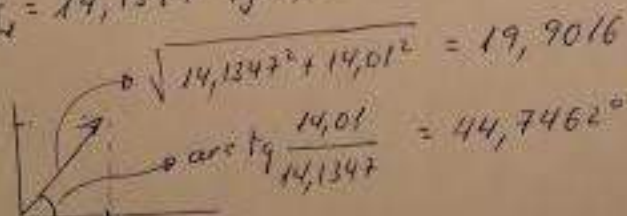 = 14,134
√14,1347² + 14,01² = 19,9016
arc tg 14,01/14,1347 = 44,7462°